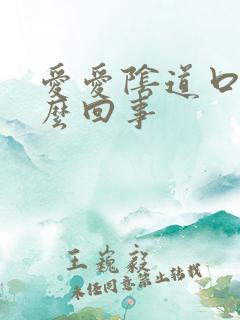 愛愛陰道口
麼回事
王巍毅
未经同意禁止转载